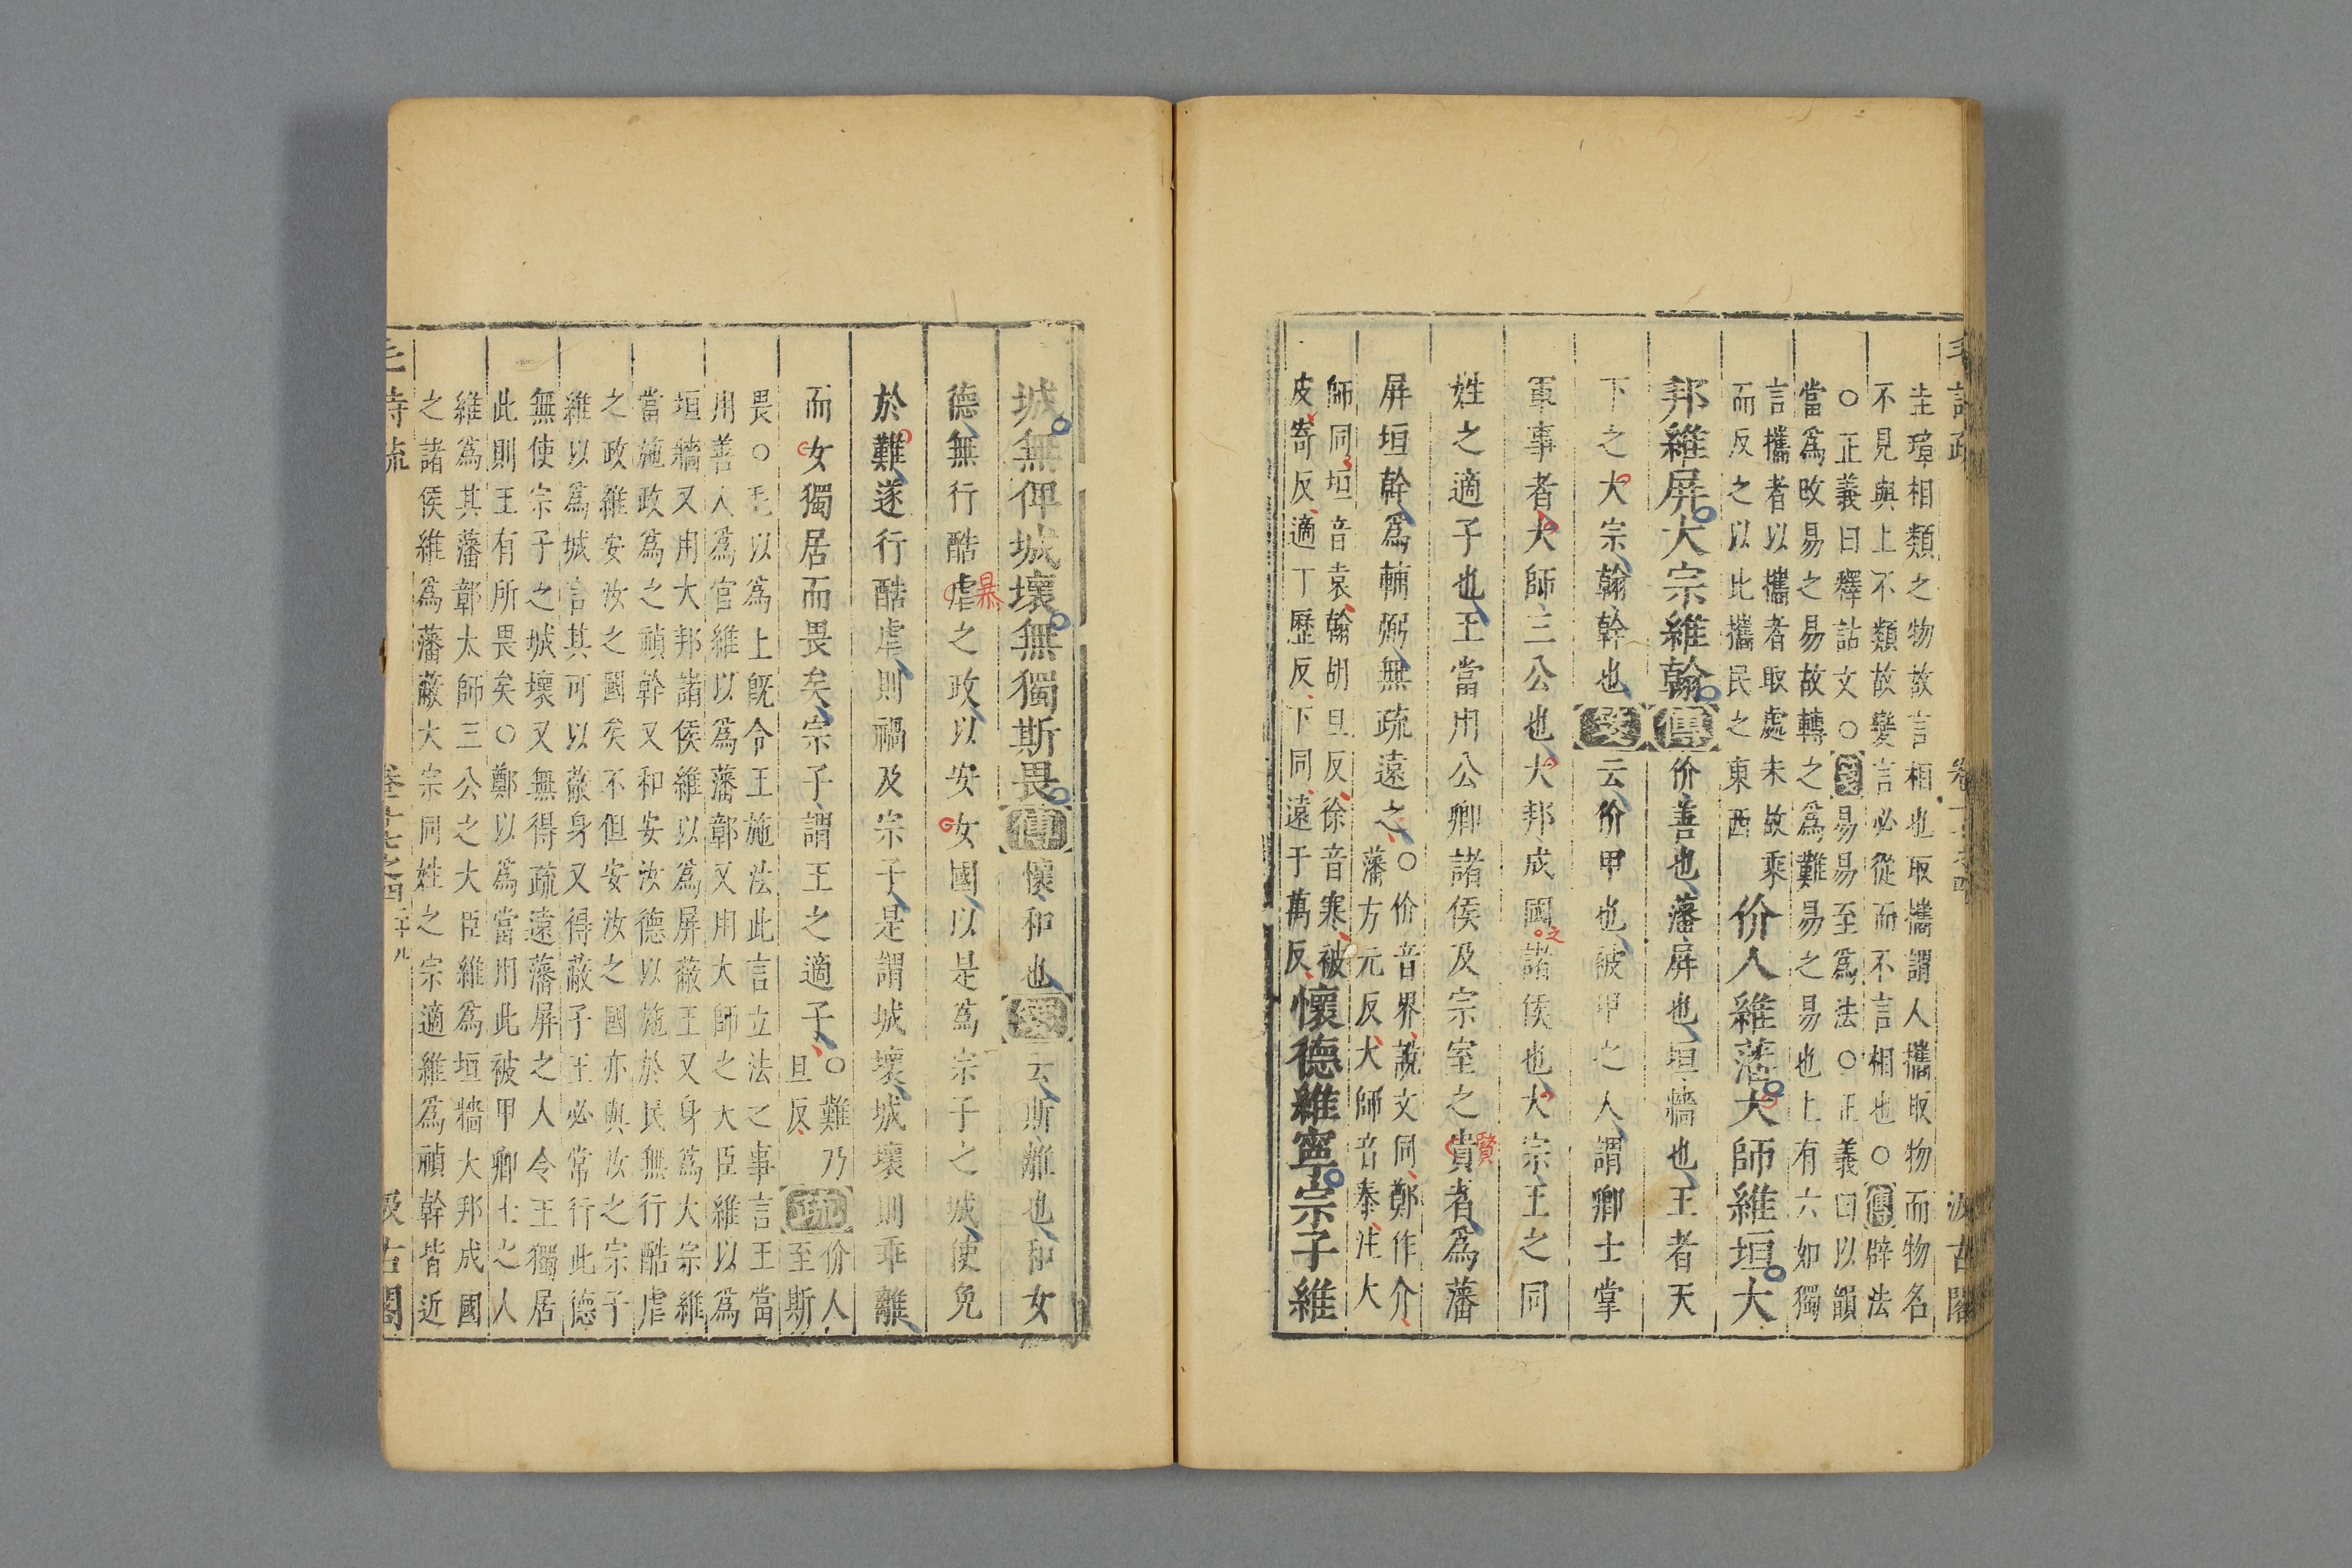 圭璋相類之物故言相也取攜謂人攜取物而物名
不見與上不類故變言必從而不言相也○傳辟法
○正義曰釋詁文○箋易易至為法○正義曰以韻
當為改易之易故轉之為難易之易也上有六如獨
言攜者以攜者取處未故乘
而反之以此攜民之東西
价人維藩大師維垣大
邦維屏大宗維翰傳价善也藩屏也垣牆也王者天
下之大宗翰幹也箋云价甲也被甲之人謂卿士掌
軍事者大師三公也大邦成國諸侯也大宗王之同
之
姓之適子也王當用公卿諸侯及宗室之貴者為藩
賢
屏垣幹為輔弼無疏遠之
○价音界說文同鄭作介
藩方元反大師音泰注大
師同垣音袁翰胡旦反徐音寒被
皮寄反適丁歷反下同遠于萬反
懷德維寧宗子維
城無俾城壞無獨斯畏傳懷和也箋云斯離也和女
德無行酷虐之政以安女國以是為宗子之城使免
暴
於難遂行酷虐則禍及宗子是謂城壞城壞則乖離
而女獨居而畏矣宗子謂王之適子
○難乃
旦反
疏
价人
至斯
畏○毛以為上既令王施法此言立法之事言王當
用善人為官維以為藩鄣又用大師之大臣維以為
垣牆又用大邦諸侯維以為屏蔽王又身為大宗維
當施政為之楨幹又和安汝德以施於民無行酷虐
之政維安汝之國矣不但安汝之國亦與汝之宗子
維以為城言其可以蔽身又得蔽子王必常行此德
無使宗子之城壞又無得疏遠藩屏之人令王獨居
此則王有所畏矣○鄭以為當用此被甲卿士之人
維為其藩鄣太師三公之大臣維為垣牆大邦成國
之諸侯維為藩蔽大宗同姓之宗適維為楨幹皆近
毛詩疏 卷十七之四 二十八 汲古閣